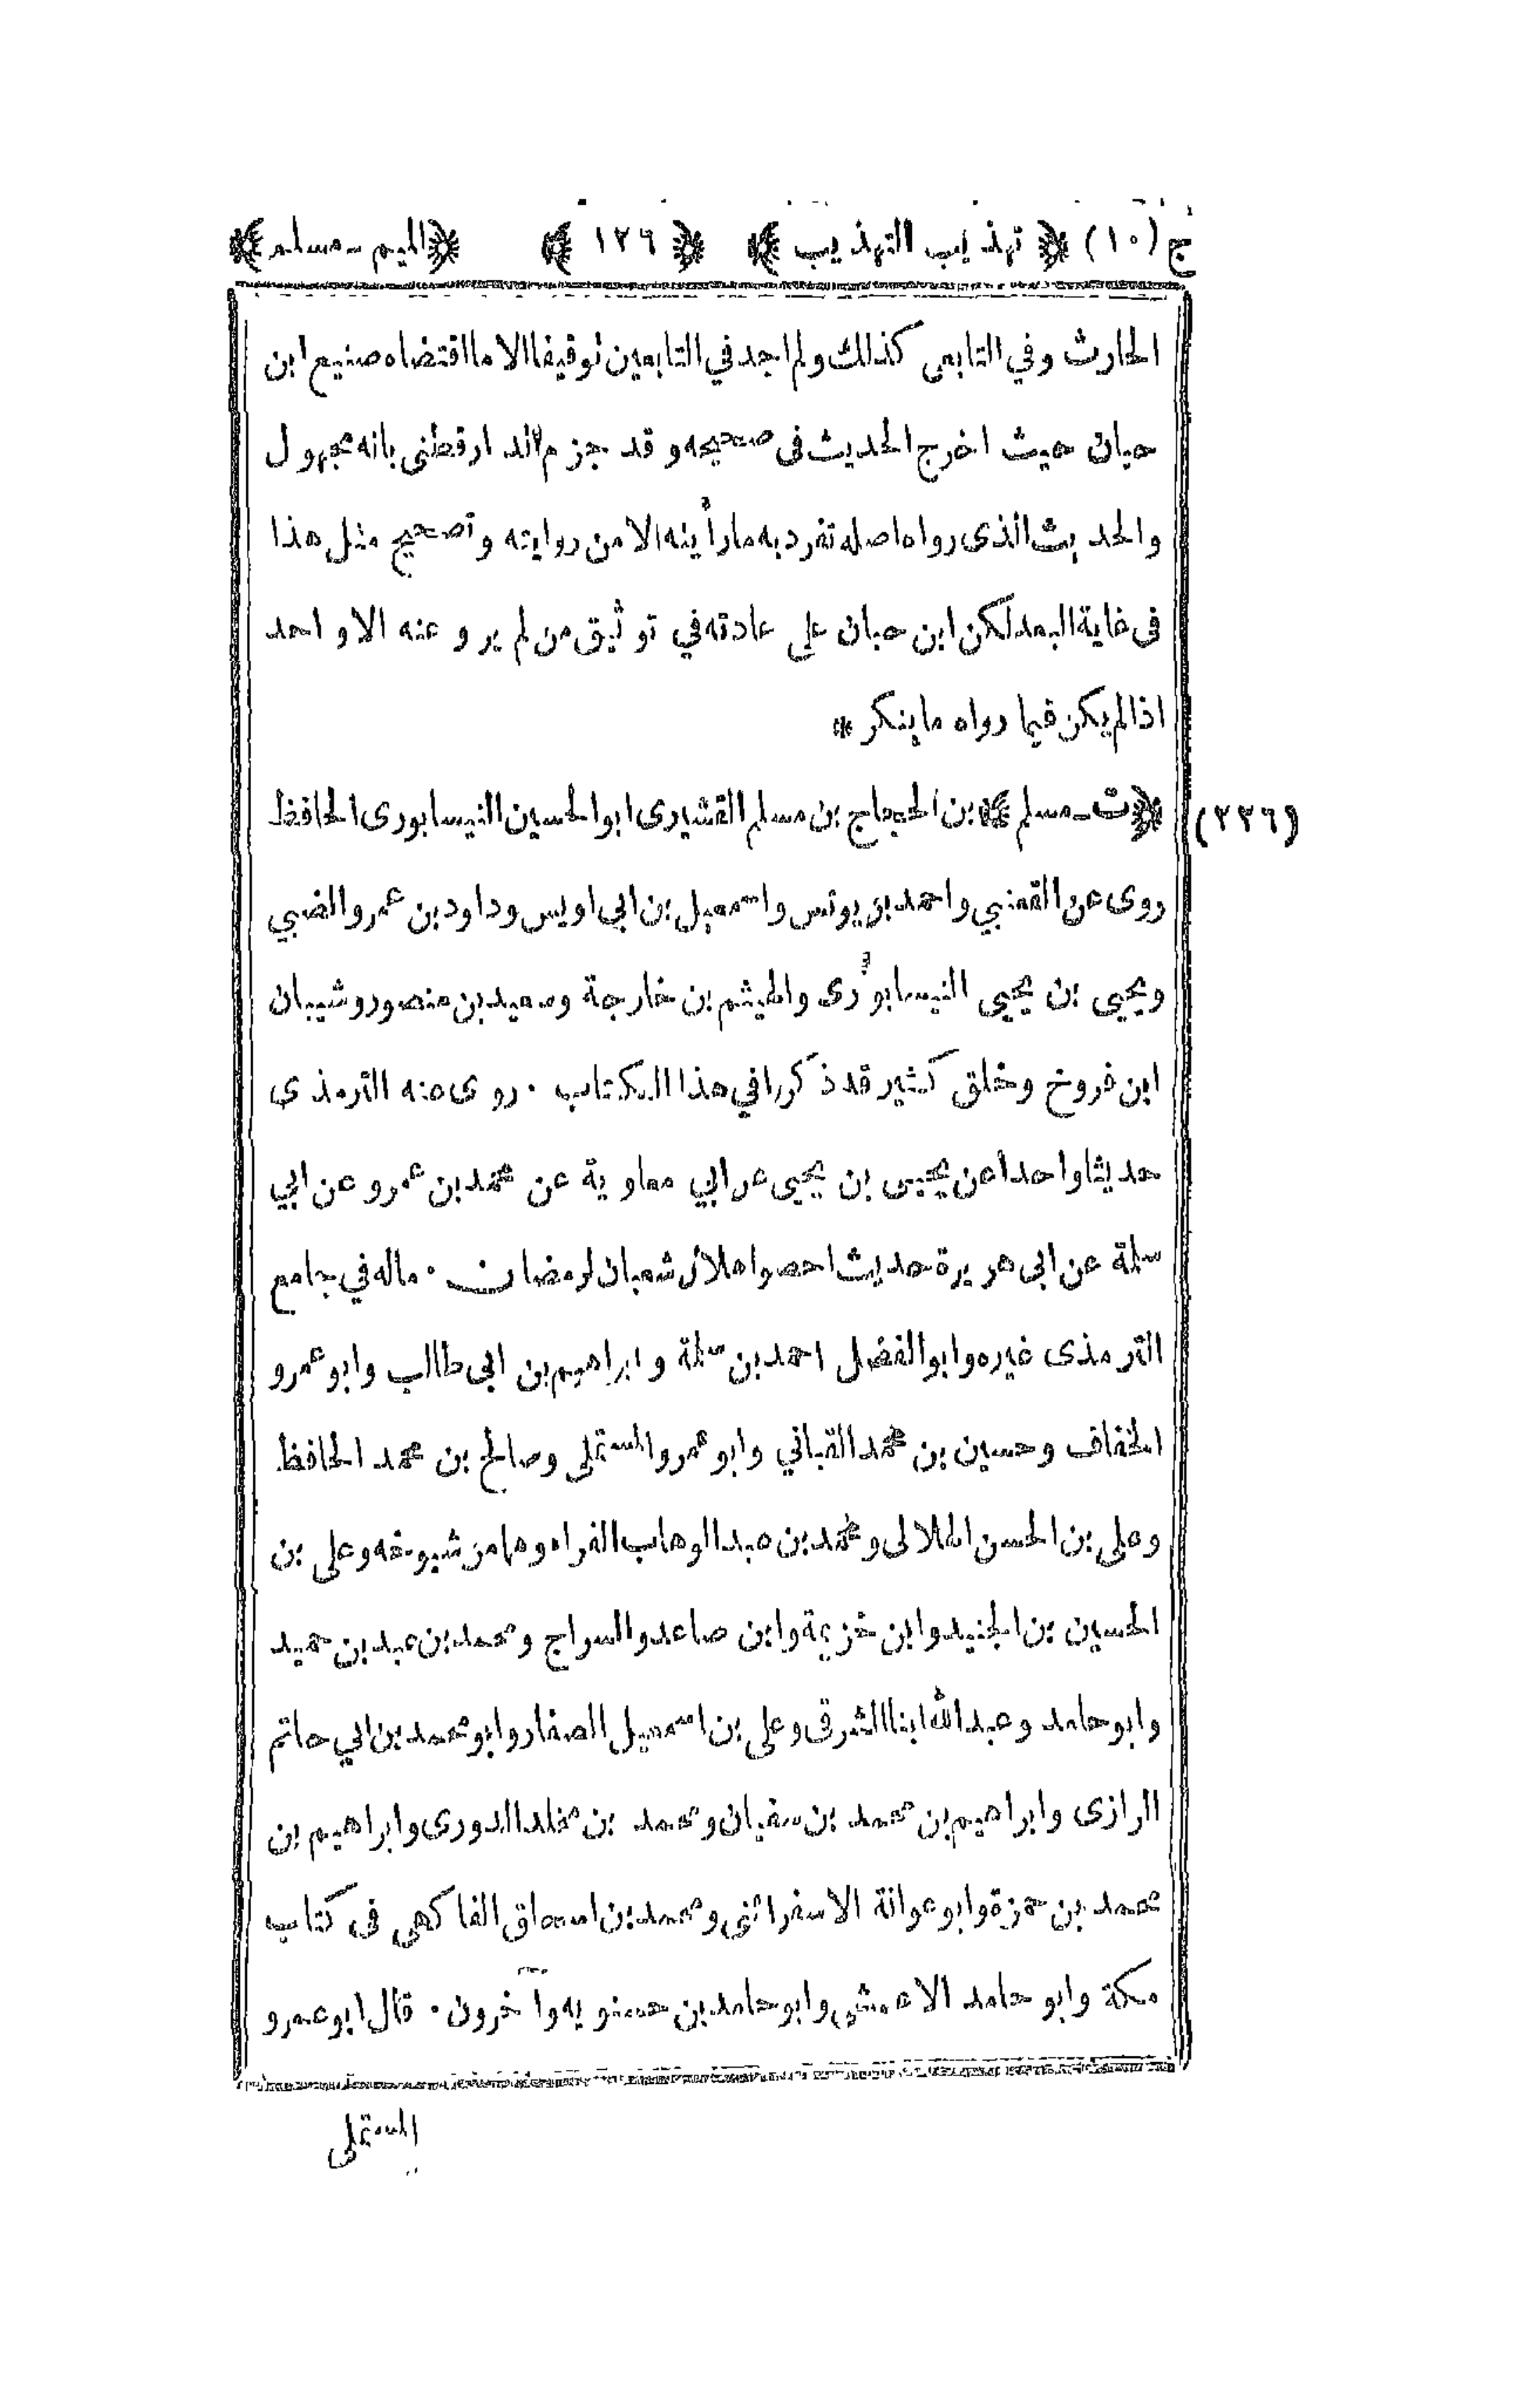 ج (١٠) ﴿ تهذيب التهذيب ﴾ ﴿ ١٢٦ ﴾ ﴿ الميم ـ مسلم ﴾
الحارث وفي التابعى كذلك ولم اجد في التابعين توقيفا الا ما اقتضاه صنيع ابن
حبان حيث اخرج الحديث فى صحيحه وقد جزم الدارقطنى بانه مجهول
والحديث الذى رواه اصله تفرد به ما رأيته الا من روايته وتصحيح مثل هذا
فى غاية البعد لكن ابن حبان على عادته في توثيق من لم يرو عنه الا واحد
اذا لم يكن فيما رواه ما ينكر *
(٢٢٦) ﴿ ت ـ مسلم ﴾ بن الحجاج بن مسلم القشيرى ابو الحسين النيسابورى الحافظ
روى عن القعنبي واحمد بن يونس واسمعيل بن ابي اويس وداود بن عمرو الضبي
ويحيى بن يحيى النيسابورى والهيثم بن خارجة وسعيد بن منصور وشيبان
ابن فروخ وخلق كثير قد ذكروا في هذا الكتاب ٠ روى عنه الترمذى
حديثا واحدا عن يحيى بن يحيى عن ابي معاوية عن محمد بن عمرو عن ابي
سلمة عن ابى هريرة حديث احصوا هلال شعبان لرمضان ٠ ماله في جامع
الترمذى غيره وابو الفضل احمد بن سلمة وابراهيم بن ابى طالب وابو عمرو
الخفاف وحسين بن محمد القباني وابو عمرو المستملى وصالح بن محمد الحافظ
وعلى بن الحسن الهلالى ومحمد بن عبد الوهاب الفراء وهما من شيوخه وعلى بن
الحسين بن الجنيد وابن خزيمة وابن صاعد والسراج ومحمد بن عبد بن حميد
وابو حامد وعبد الله ابنا الشرقى وعلى بن اسمعيل الصفار وابو محمد بن ابي حاتم
الرازى وابراهيم بن محمد بن سفيان ومحمد بن مخلد الدورى وابراهيم بن
محمد بن حمزة وابو عوانة الاسفرائنى ومحمد بن اسحاق الفاكهى فى كتاب
مكة وابو حامد الاعمشى وابو حامد بن حسنويه وآخرون ٠ قال ابو عمرو
المستملى